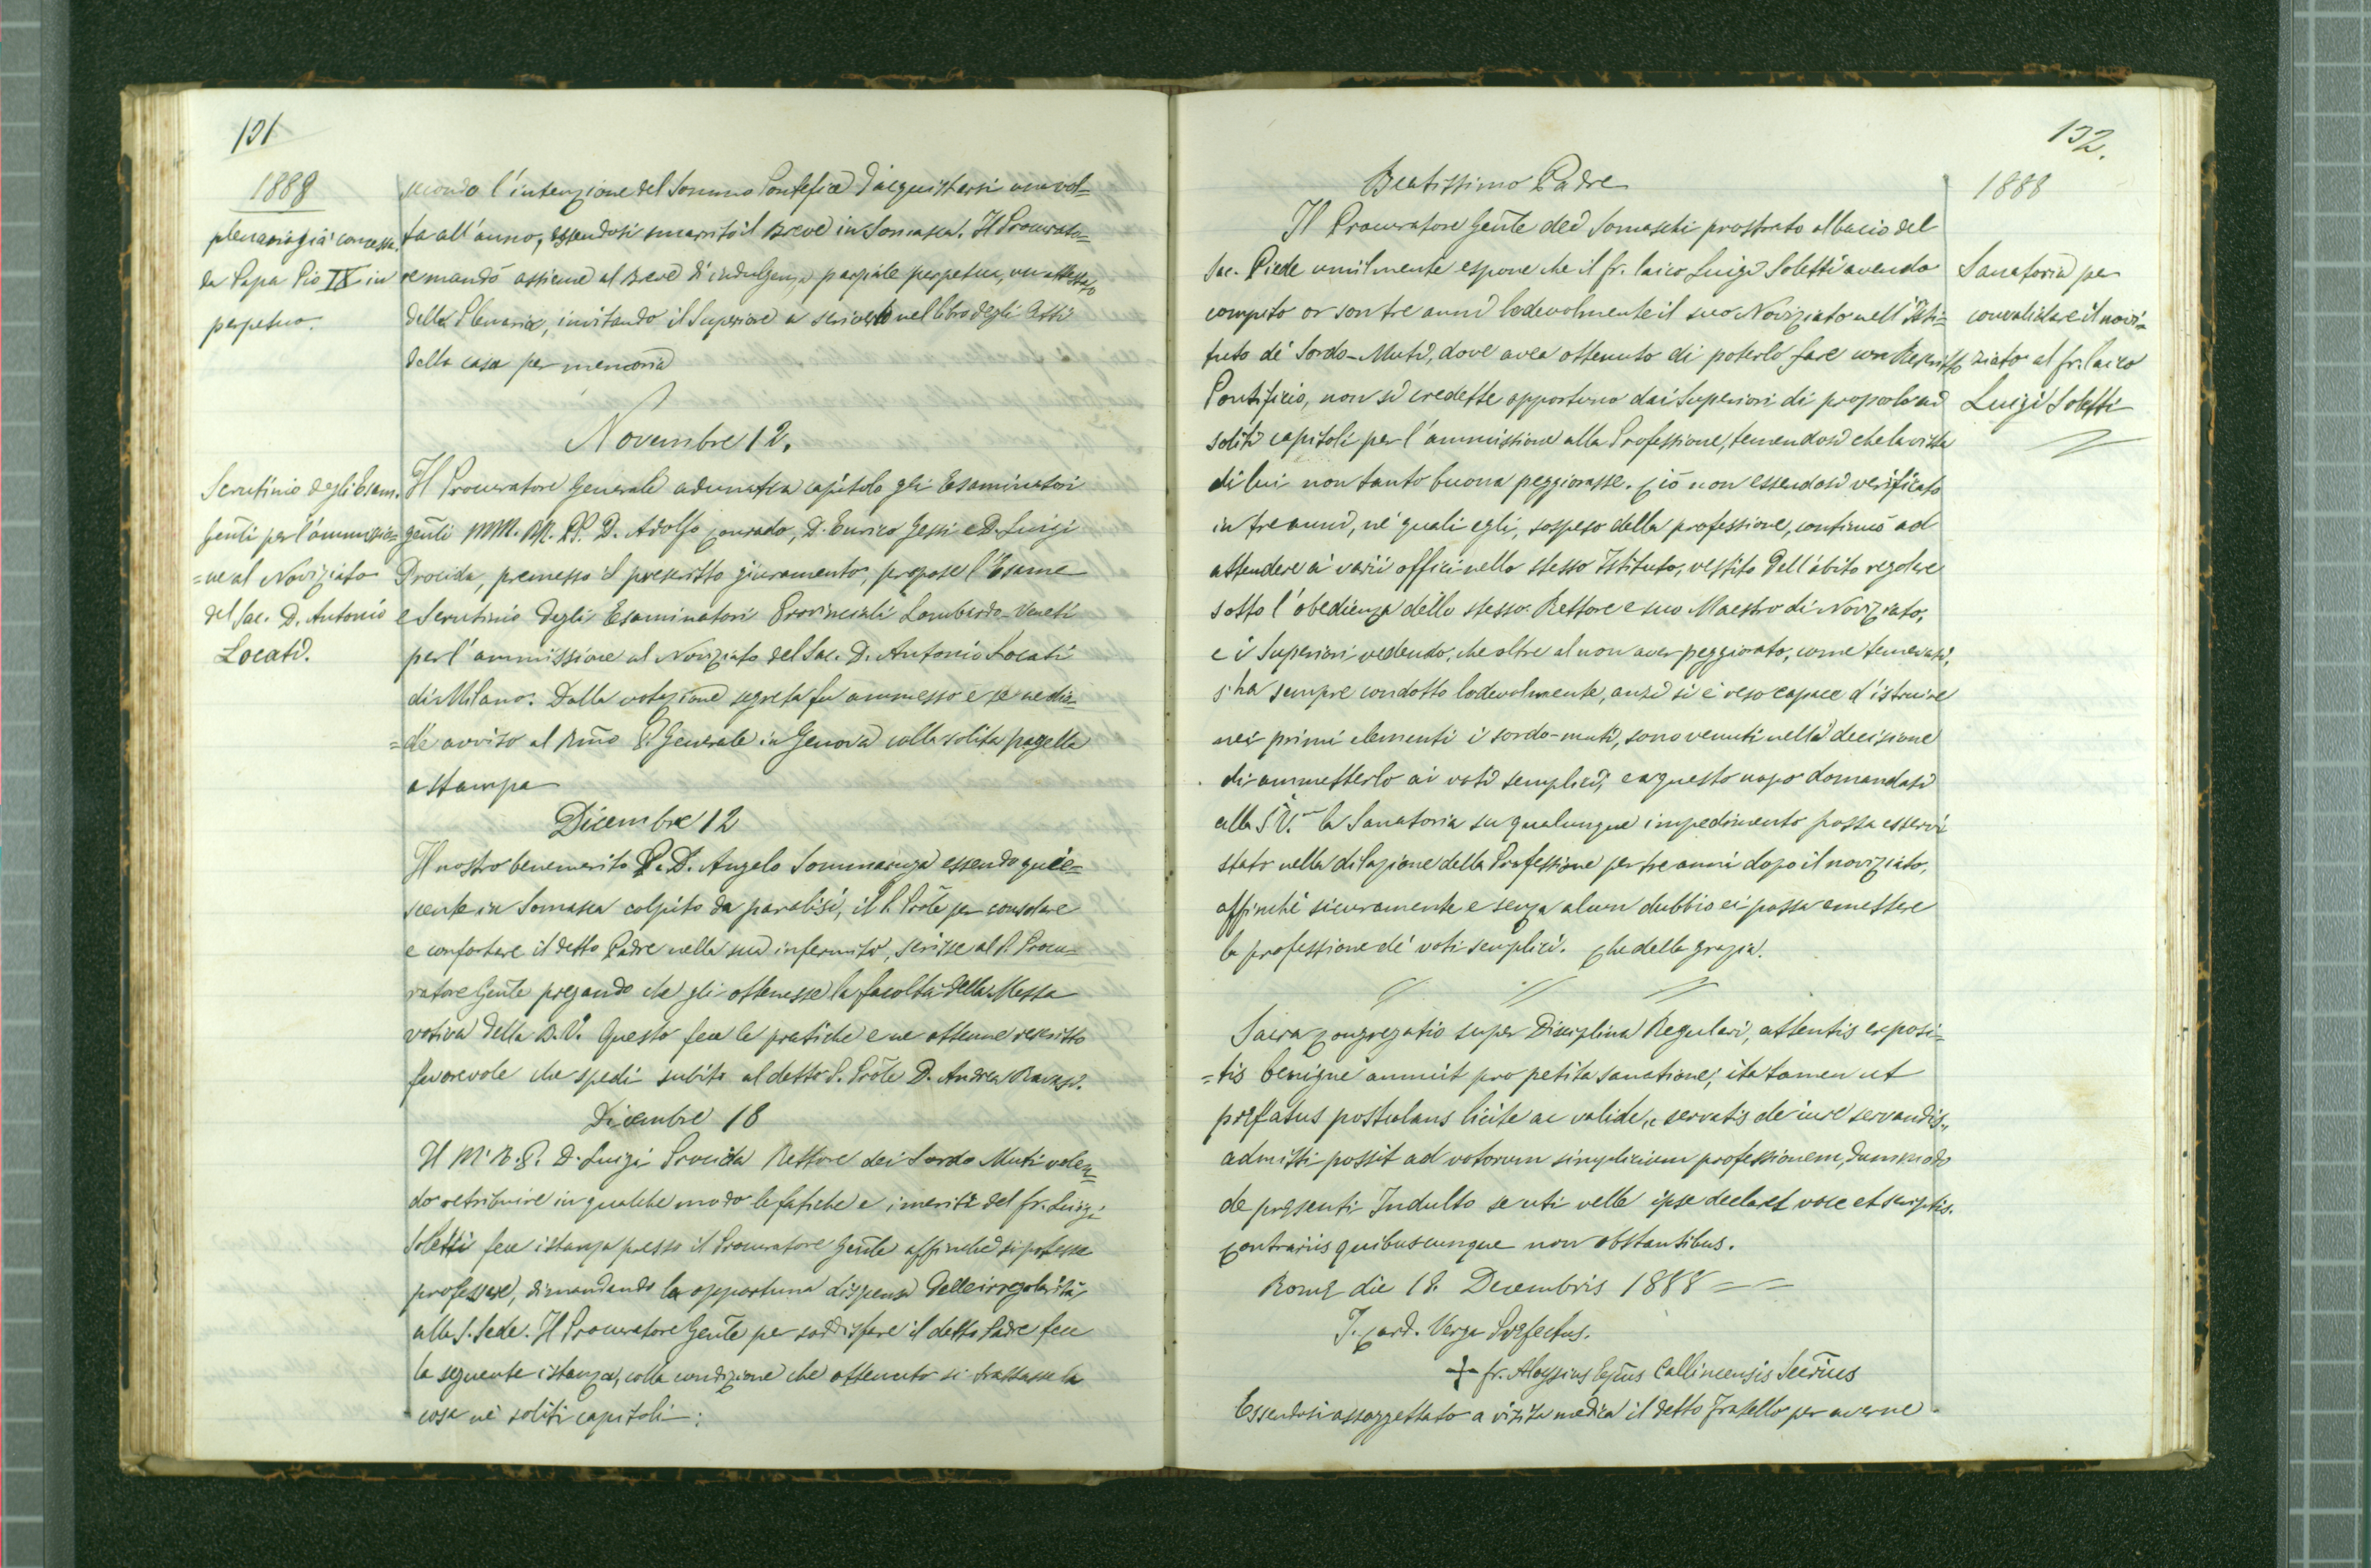 131
1888
plenaria già concessa
da Papa Pio IX in
perpetuo.
secondo l'intenzione del Sommo Pontefice d'acquistarsi una vol=
ta all'anno, essendosi smarrito il Breve in Somasca. Il Procurato=
re mandò assieme al Breve di indulgenza parziale perpetua, un attestato
della Plenaria, invitando il Superiore a scriverlo nel libro degli Atti
della casa per memoria
Novembre 12.
Scrutinio degli Esam.
genti per l'ammissio=
=ne al Noviziato
del Sac. D. Antonio
Locati.
Il Procuratore Generale adunati a capitolo gli Esaminatori
genti MM. RR. PP. D. Adolfo Conrado, D. Enrico Gessi e D. Luigi
Procida, premesso il prescritto giuramento, propose l'Esame
e Scrutinio degli Esaminatori Provinciali Lombardo-Veneti
per l'ammissione al Noviziato del Sac. D. Antonio Locati
di Milano. Dalla votazione segreta fu ammesso e se ne die=
=dè avviso al Rmo P. Generale in Genova colla solita pagella
a stampa
Dicembre 12
Il nostro benemerito P. D. Angelo Sommariva essendo quie=
scente in Somasca colpito da paralisi, il P. Prõle per consolare
e confortare il detto Padre nella sua infermità, scrisse al P. Procu=
ratore Genle pregando che gli ottenesse la facoltà della Messa
votiva della B.V. Questo fece le pratiche e ne ottenne rescritto
favorevole che spedì subito al detto P. Prõle D. Andrea Ravasi.
Dicembre 18
Il M. R. P. D. Luigi Procida Rettore dei Sordo Muti volen=
do retribuire in qualche modo le fatiche e i meriti del fr. Luigi
Soletti fece istanza presso il Procuratore Genle affinché si potesse
professare, dimandando la opportuna dispensa delle irregolarità
alla S. Sede. Il Procuratore Genle per soddisfare il detto Padre fece
la seguente istanza, colla condizione che ottenuto si trattasse la
cosa ne' soliti capitoli:
132.
1888
Sanatoria per
convalidare il novi=
ziato al fr. laico
Luigi Soletti
Beatissimo Padre
Il Procuratore Genle dei Somaschi prostrato al bacio del
Sac. Piede umilmente espone che il fr. laico Luigi Soletti avendo
compito or son tre anni lodevolmente il suo Noviziato nell'Isti=
tuto de' Sordo-Muti, dove avea ottenuto di poterlo fare con Rescritto
Pontificio, non si credette opportuno dai Superiori di proporlo ai
soliti capitoli per l'ammissione alla Professione, temendosi che la vista
di lui non tanto buona peggiorasse. Ciò non essendosi verificato
in tre anni, ne' quali egli, sospeso della professione, continuò ad
attendere ai varii offici nello stesso Istituto, vestito dell'abito regolare
sotto l'obedienza dello stesso Rettore e suo Maestro di Noviziato,
e i Superiori vedendo, che oltre al non aver peggiorato, come temevasi,
s'ha sempre condotto lodevolmente, anzi si è reso capace d'istruire
nei primi elementi i sordo-muti, sono venuti nella decisione
di ammetterlo ai voti semplici, e a questo uopo domandasi
alla S.V. la Sanatoria su qualunque impedimento possa esservi
stato nella dilazione della Professione per tre anni dopo il noviziato,
affinchè sicuramente e senza alcun dubbio ei possa emettere
la professione de' voti semplici. Che della grazia.
Sacra Congregatio super Disciplina Regulari, attentis exposi=
=tis benigne annuit pro petita sanatione; ita tamen ut
præfatus postulans licite ac valide, „servatis de iure servandis„
admitti possit ad votorum simplicium professionem, dummodo
de præsenti Indulto se uti velle ipse declaret voce et scriptis.
Contrariis quibuscumque non obstantibus.
Romæ die 18. Decembris 1888 ==
I. Card. Verga Præfectus.
+ fr. Aloysius Epũs Callinicensis Secrius
Essendosi assoggettato a visita medica il detto fratello per averne